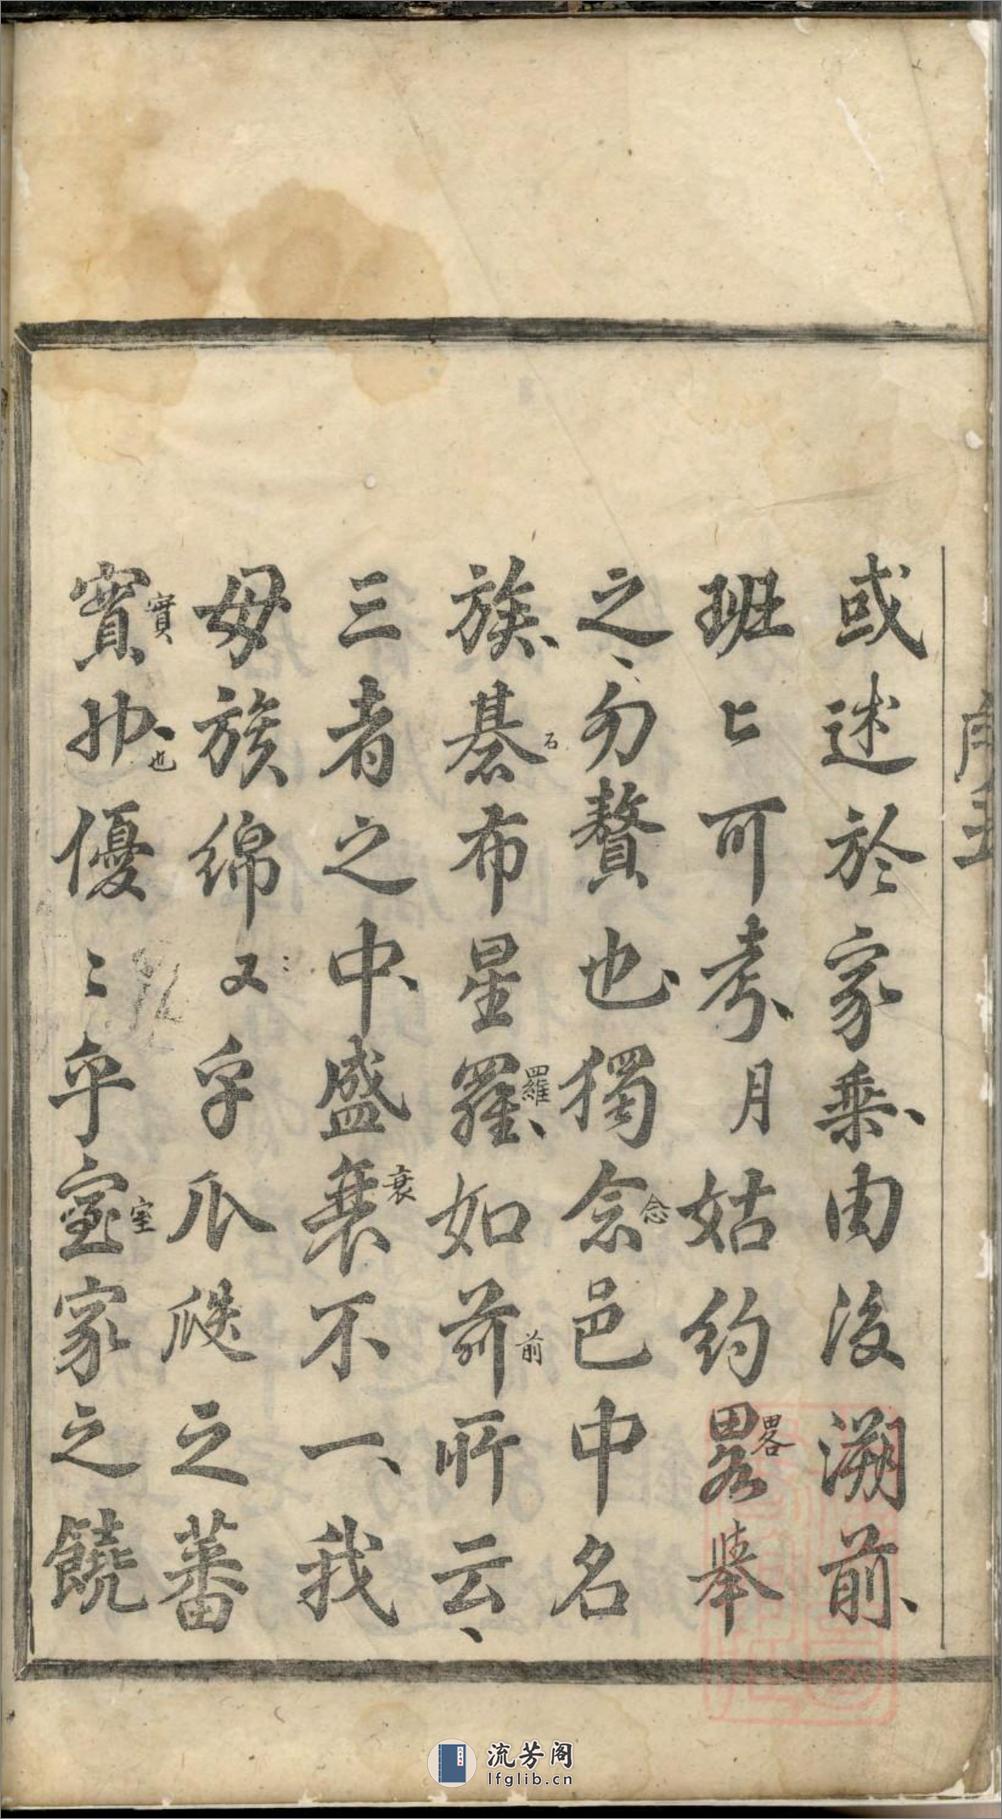 或述於家乘、由後溯前、
班〻可考、月姑約畧畧舉
之、勿贅也、獨念念邑中名
族、綦石布星羅羅、如前前所云、
三者之中、盛衰衰不一、我
毋族綿又〻字瓜瓞之蕃
實實也、也優〻乎室室家之饒
流芳阁
lfglib.cn